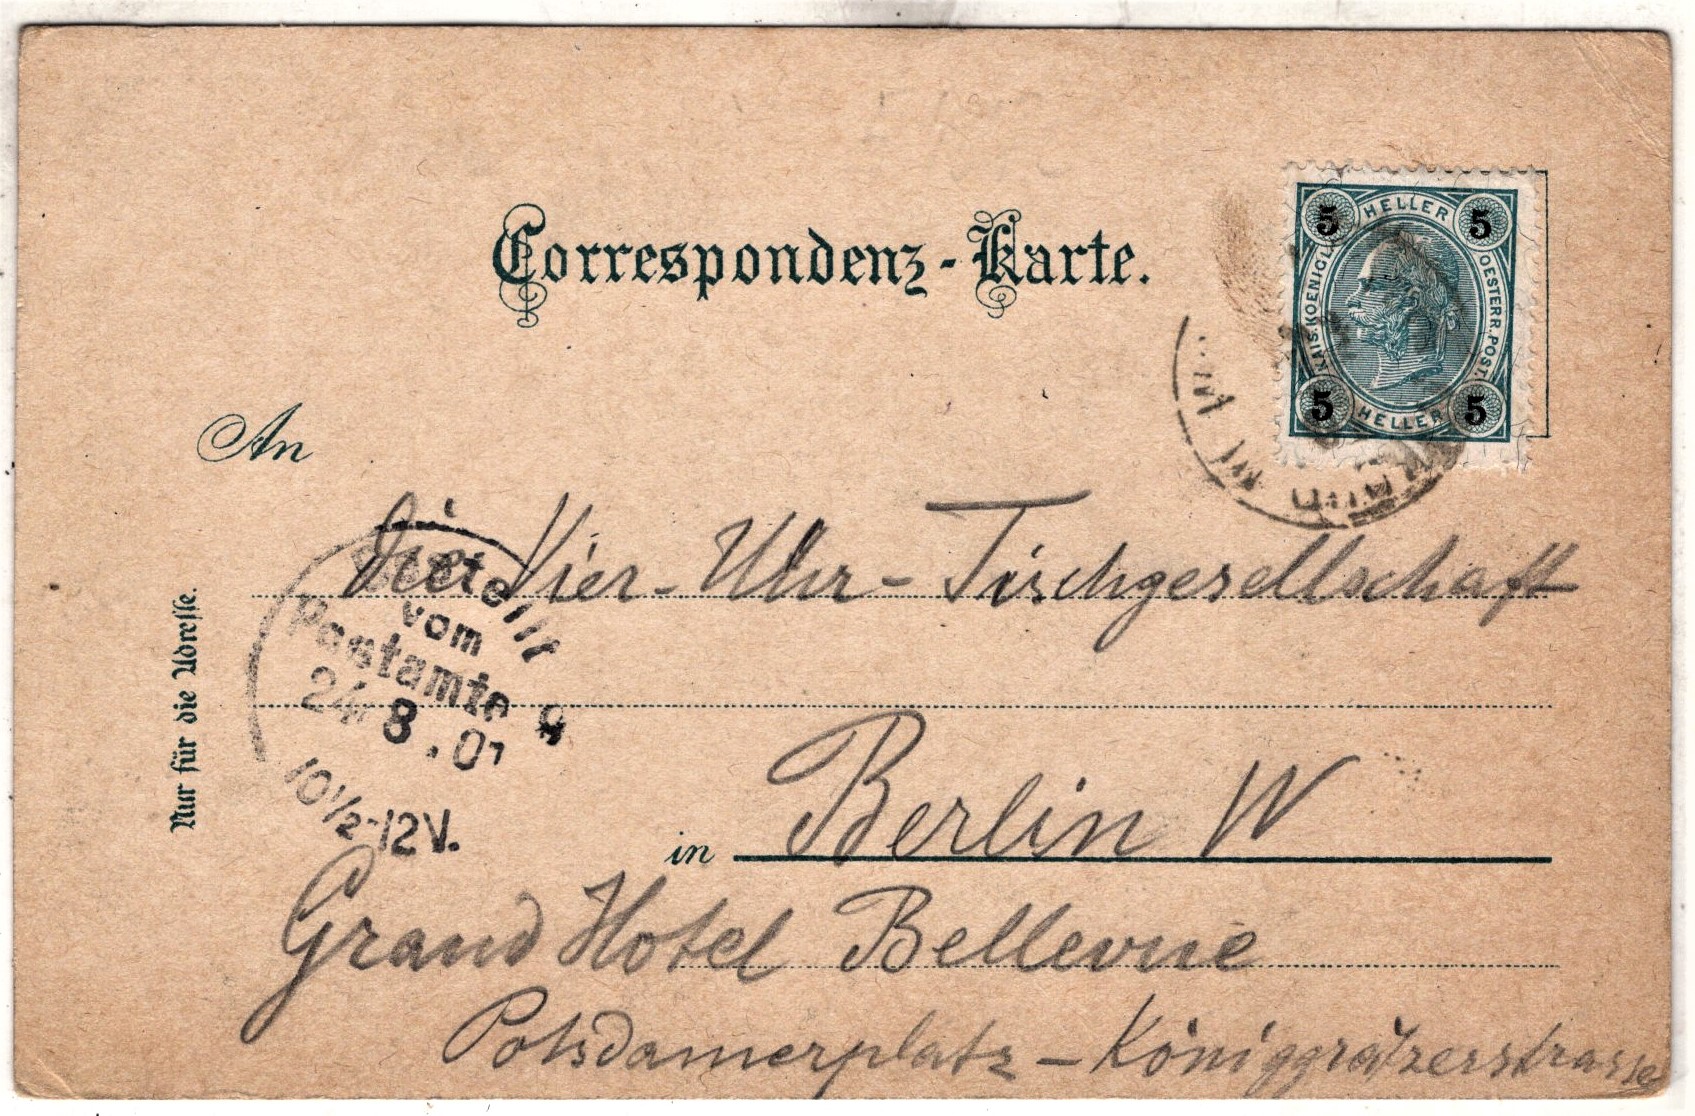 Correspondenz-Karte.
5 HELLER 5
KAIS. KOENIGL. OESTERR. POST.
5 HELLER 5
An
Die Vier-Uhr-Tischgesellschaft
Bestellt
vom
Postamte 9
24 8.01
10½-12V.
Nur für die Adresse.
in Berlin W
Grand Hotel Bellevue
Potsdamerplatz - Königgrätzerstrasse